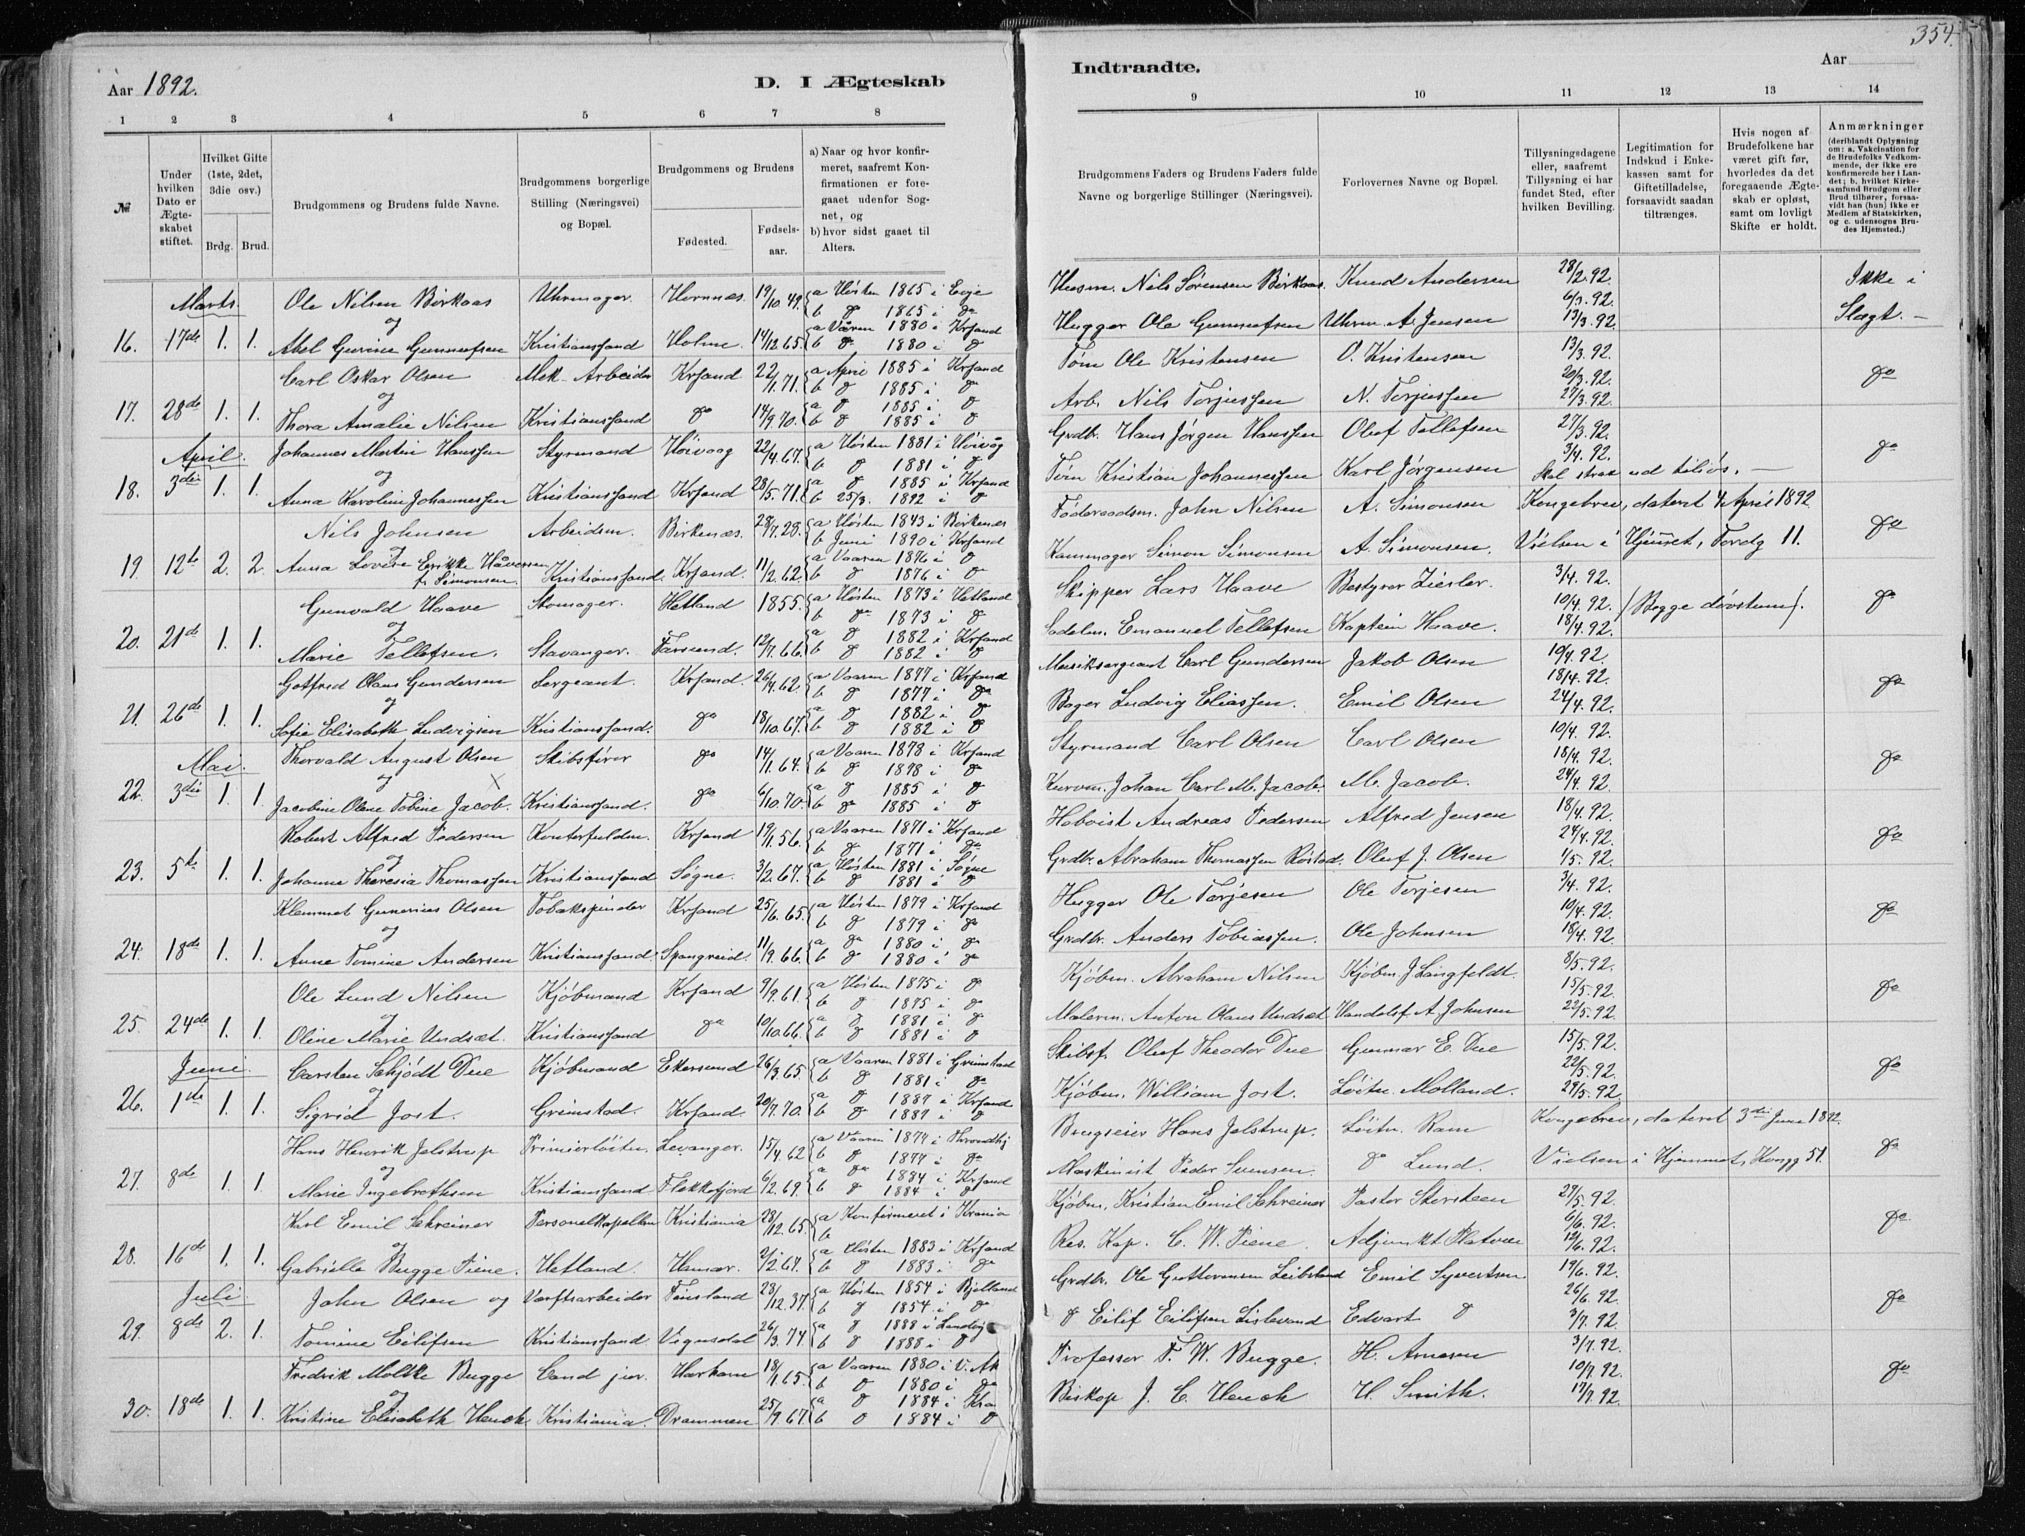 354.
Aar 1892.
D. I Ægteskab
Indtraadte.
Aar
1 2 3 4 5 6 7 8 9 10 11 12 13 14
№
Under hvilken Dato er Ægteskabet stiftet.
Hvilket Gifte (1ste, 2det, 3die osv.)
Brdg. Brud.
Brudgommens og Brudens fulde Navne.
Brudgommens borgerlige Stilling (Næringsvei) og Bopæl.
Brudgommens og Brudens
Fødested. Fødselsaar.
a) Naar og hvor konfirmeret, saafremt Konfirmationen er foregaaet udenfor Sognet, og
b) hvor sidst gaaet til Alters.
Brudgommens Faders og Brudens Faders fulde Navne og borgerlige Stillinger (Næringsvei).
Forlovernes Navne og Bopæl.
Tillysningsdagene eller, saafremt Tillysning ei har fundet Sted, efter hvilken Bevilling.
Legitimation for Indskud i Enkekassen samt for Giftetilladelse, forsaavidt saadan tiltrænges.
Hvis nogen af Brudefolkene har været gift før, hvorledes da det foregaaende Ægteskab er opløst, samt om lovligt Skifte er holdt.
Anmærkninger (deriblandt Oplysning om: a. Vakcination for de Brudefolks Vedkommende, der ikke ere konfirmerede her i Landet; b. hvilket Kirkesamfund Brudgom eller Brud tilhører, forsaavidt han (hun) ikke er Medlem af Statskirken, og c. udensogns Brudes Hjemsted.)
Marts. Ole Nilsen Birkaas Uhrmager. Hornnæs. 19/10.49. a Høsten 1865 i Evje Husm. Nils Sørensen Birkaas. Knud Andersen 28/2.92. Ikke i
og b do 1865 i do 6/3.92.
16. 17de 1. 1. Abel Gurine Gunneufsen Kristianssand Holme. 14/12.65. a Våren 1880 i Krsand b do 1880 i do Hugger Ole Gunneufsen Uhrm. A. Jensen 13/3.92. Slægt. —
Carl Oskar Olsen Mek. Arbeider Krsand 22/1.71. a April 1885 i Krsand b do 1885 i do Tøm Ole Kristensen O. Kristensen 13/3.92.
og 20/3.92. do
17. 28de 1. 1. Thora Amalie Nilsen Kristianssand do 14/9.70. a do 1885 i do b do 1885 i do Arb. Nils Torjussen N. Torjussen 27/3.92.
April. Johannes Martin Hanssen Styrmand Høivaag 22/4.67. a Høsten 1881 i Høivåg b do 1881 i do Grdbr. Hans Jørgen Hanssen Oluf Tellefsen 27/3.92.
og 3/4.92. do
18. 3die 1. 1. Anna Karoline Johannessen Kristianssand Krsand 28/5.71. a do 1885 i Krsand b 25/3. 1892 i do Tøm Kristian Johannessen Karl Jørgensen Skal strax ud tilsøs. —
Nils Johnsen Arbeidsm. Birkenæs. 28/7.28. a Høsten 1843 i Birkenæs b Juni 1890 i Krsand Føderaadsm. John Nilsen A. Simonsen Kongebrev, dateret 4 April 1892
og do
19. 12te 2. 2. Anna Lovise Enrikke Håversen f. Simonsen. Kristianssand. Krsand. 11/2.62. a Vaaren 1876 i do b do 1876 i do Kammager Simon Simonsen A. Simonsen. Vielsen i Hjemmet, Tordg 11.
Gunvald Haave Skomager. Hetland 1855. a Høsten 1873 i Hetland b do 1873 i do Skipper Lars Haave Bestyrer Ziesler. 3/4.92.
og 10/4.92. (Begge døvstum). do
20. 21de 1. 1. Marie Tellefsen. Stavanger. Farsund. 12/7.66. a do 1882 i Krsand b do 1882 i do Sadelm. Emanuel Tellefsen Kaptein Haave. 18/4.92.
Gotfred Olaus Gundersen Sergeant. Krsand. 26/4.62. a Vaaren 1877 i Krsand b do 1877 i do Musiksergeant Carl Gundersen Jakob Olsen 10/4.92.
og 18/4.92. do
21. 26de 1. 1. Sofie Elisabeth Ludvigsen Kristianssand. do 18/10.67. a do 1882 i do b do 1882 i do Bager Ludvig Eliassen. Emil Olsen 24/4.92.
Mai. Thorvald August Olsen Skibsfører do 14/1.64. a Vaaren 1878 i Krsand b do 1878 i do Styrmand Carl Olsen Carl Olsen 10/4.92.
og X 18/4.92. do
22. 3die 1. 1. Jacobine Olene Tobine Jacob. Kristianssand. do 6/10.70. a do 1885 i do b do 1885 i do Kurvm. Johan Carl M. Jacob. M. Jacob. 24/4.92.
Robert Alfred Pedersen Kontorfuldm. Krsand 19/1.56. a Vaaren 1871 i Krsand b do 1871 i do Hoboist Andreas Pedersen Alfred Jensen 18/4.92.
og 24/4.92. do
23. 5te 1. 1. Johanne Theresia Thomassen Kristianssand Søgne. 3/2.67. a Høsten 1881 i Søgne b do 1881 i do Grdbr. Abraham Thomassen Røstad. Oluf J. Olsen 1/5.92.
Klemmet Gunerius Olsen Tobakspinder Krsand 25/6.65. a Høsten 1879 i Krsand b do 1879 i do Hugger Ole Torjesen Ole Torjesen 3/4.92.
og 10/4.92. do
24. 18de 1. 1. Anne Tomine Andersen Kristianssand. Spangreid. 11/9.66. a do 1880 i do b do 1880 i do Grdbr. Anders Tobiassen. Ole Johnsen 18/4.92.
Ole Lund Nilsen Kjøbmand Krsand 9/9.61. a Høsten 1875 i do b do 1875 i do Kjøbm. Abraham Nilsen Kjøbm. J Langfeldt. 8/5.92.
og 15/5.92. do
25. 24de 1. 1. Oline Marie Undsæt. Kristianssand do 10/10.66. a do 1881 i do b do 1881 i do Malerm. Anton Olaus Undsæt Handelsf. A. Johnsen 22/5.92.
Juni. Carsten Schjødt Due Kjøbmand Ekersund 26/3.65. a Vaaren 1881 i Grimstad b do 1881 i do Skibsf. Oluf Theodor Due Gunnar E. Due 15/5.92.
og 22/5.92. do
26. 1ste 1. 1. Sigrid Jost. Grimstad. Krsand. 20/7.70. a do 1887 i Krsand b do 1887 i do Kjøbm. William Jost. Løitn. Molland. 29/5.92.
Hans Henrik Jelstrup Primierløitn. Levanger. 15/4.62 a Vaaren 1877 i Throndhj b do 1877 i do Brugseier Hans Jelstrup. Løitn. Ram Kongebrev, dateret 3die Juni 1892.
og do
27. 8de 1. 1. Marie Ingebrethsen Kristianssand Flekkefjord 6/12.69. a do 1884 i Krsand b do 1884 i do Maskinist Peder Svensen. do Lund. Vielsen i Hjemmet, Kongg 51.
Karl Emil Schreiner Personelkapellan Kristiania 28/12.65. a Konfirmeret i Krania b Kjøbm. Kristian Emil Schreiner Pastor Storsteen 29/5.92
og 6/6.92. do
28. 16de 1. 1. Gabrielle Bugge Piene. Hetland. Hamar. 2/2.67. a Høsten 1883 i Krsand b do 1883 i do Res. Kap. C. W. Piene. Adjunkt Platou 12/6.92.
Juli John Olsen og Værftsarbeider Finsland 28/12.37. a Høsten 1854 i Bjelland b do 1854 i do Grdbr. Ole Guttormsen Leibsland Emil Syvertsen 19/6.92.
26/6.92. do
29. 8de 2. 1. Tomine Eilifsen Kristianssand Vigmodal 26/3.74 a do 1888 i Landvig b do 1888 i do do Eilif Eilifsen Lislevand Edvart do 3/7.92.
Fredrik Moltke Bugge Cand jur. Harham 18/1.65. a Vaaren 1880 i V. Ak b do 1880 i do Professor F. W. Bugge. H. Arnesen 3/7.92.
og 10/7.92. do
30. 18de 1. 1. Kristine Elisabeth Heuch Kristiania. Drammen 25/9.67. a do 1884 i Kra b do 1884 i do Biskop J. C. Heuch H Smith. 17/7.92.